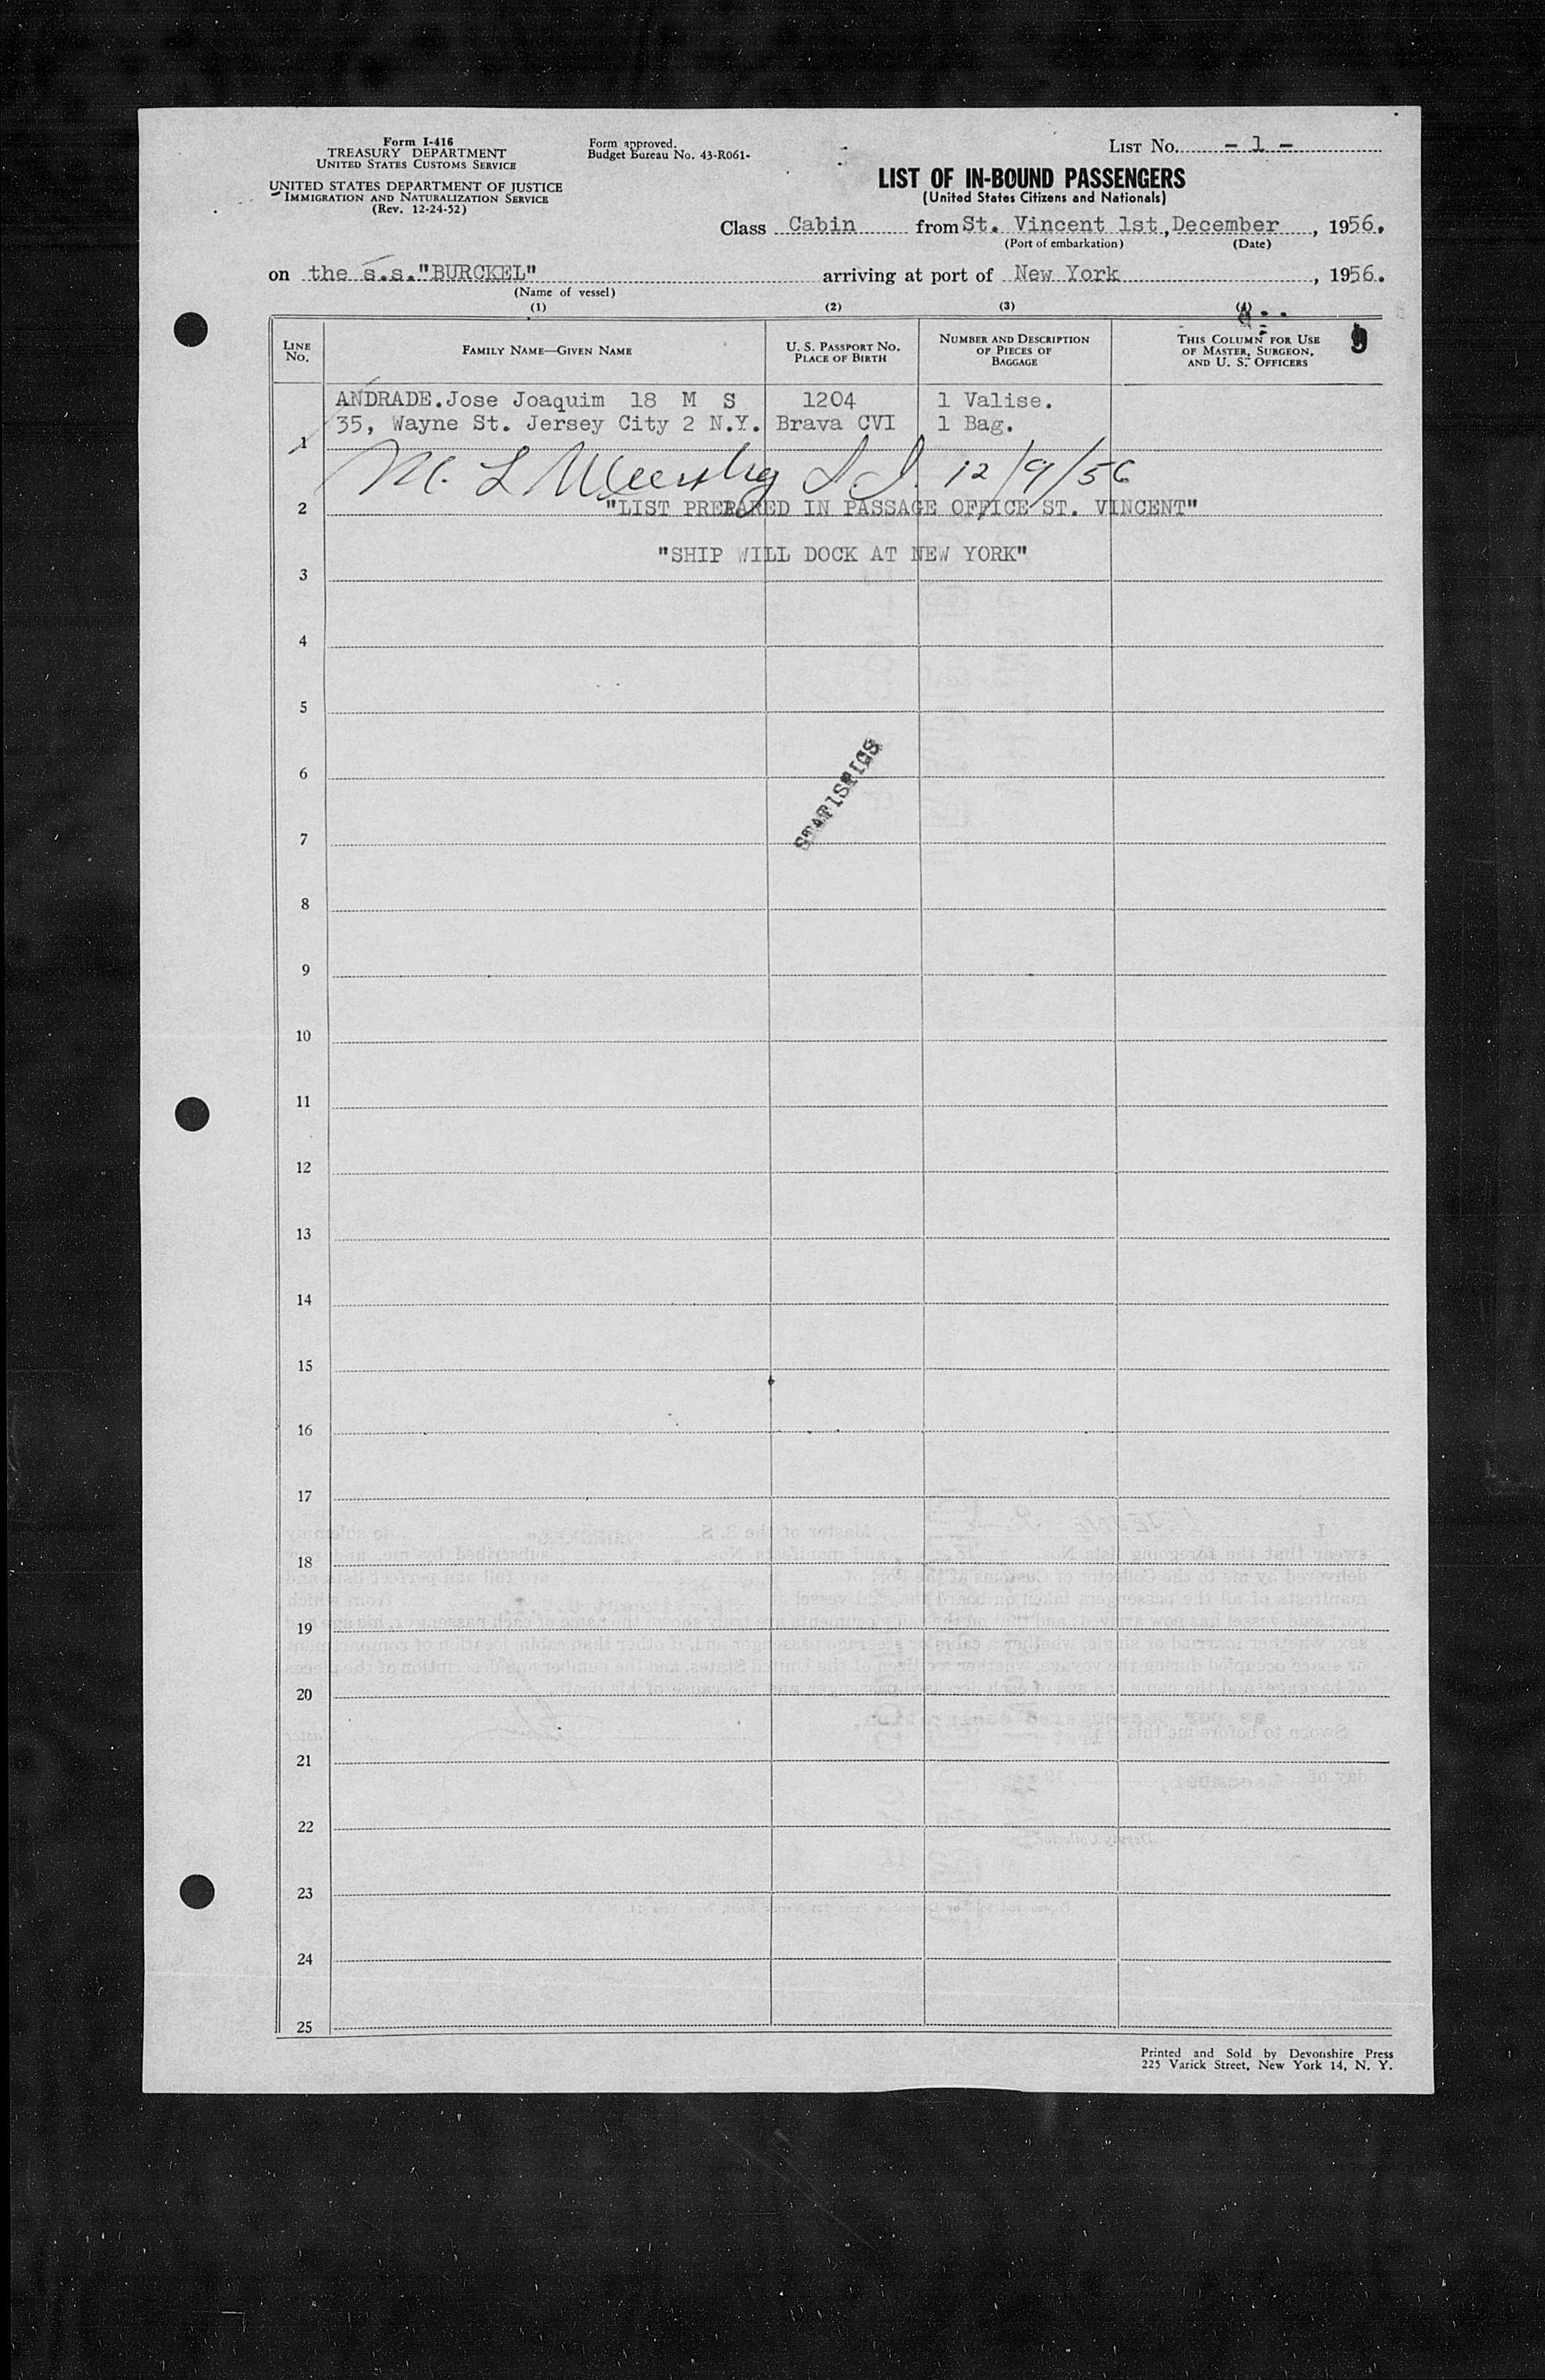 Form I-416
TREASURY DEPARTMENT
UNITED STATES CUSTOMS SERVICE
UNITED STATES DEPARTMENT OF JUSTICE
IMMIGRATION AND NATURALIZATION SERVICE
(Rev. 12-24-52)
Form approved.
Budget Bureau No. 43-R061-
LIST NO. - 1 -
LIST OF IN-BOUND PASSENGERS
(United States Citizens and Nationals)
Class Cabin from St. Vincent 1st, December, 1956.
(Port of embarkation) (Date)
on the s.s."BURCKEL" arriving at port of New York, 1956.
(Name of vessel)
(1) (2) (3) (4)
LINE NO.
FAMILY NAME—GIVEN NAME
U. S. PASSPORT NO.
PLACE OF BIRTH
NUMBER AND DESCRIPTION
OF PIECES OF
BAGGAGE
THIS COLUMN FOR USE
OF MASTER, SURGEON,
AND U. S. OFFICERS
9
ANDRADE.Jose Joaquim 18 M S 1204 1 Valise.
35, Wayne St. Jersey City 2 N.Y. Brava CVI 1 Bag.
1
12/9/56
2 "LIST PREPARED IN PASSAGE OFFICE ST. VINCENT"
"SHIP WILL DOCK AT NEW YORK"
3
4
5
6
STATISTICS
7
8
9
10
11
12
13
14
15
16
17
18
19
20
21
22
23
24
25
Printed and Sold by Devonshire Press
225 Varick Street, New York 14, N. Y.